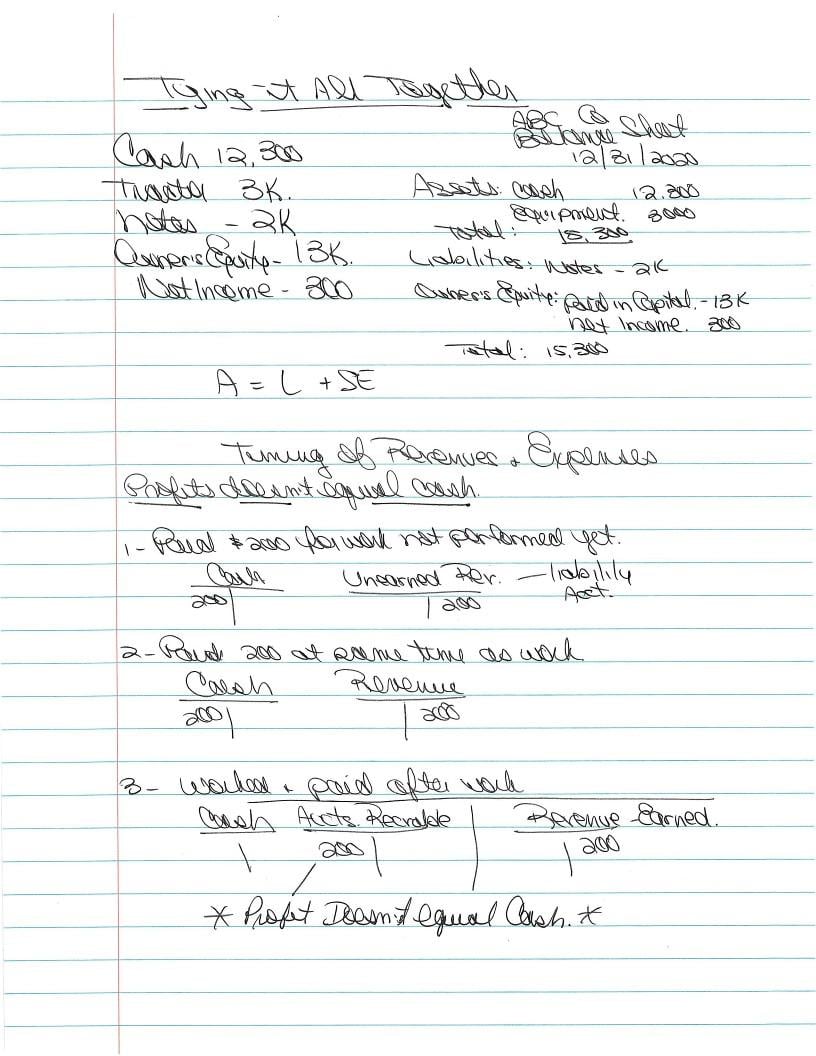 Tying it All Together
Cash 12,300
Tractor 3K.
Notes - 2K
Owner's Equity - 13K.
Net Income - 300
ABC Co
Balance Sheet
12/31/2020
Assets: Cash 12,300
Equipment. 3000
Total: 15,300
Liabilities: Notes - 2K
Owner's Equity: Paid in Capital. - 13K
Net Income. 300
Total: 15,300
A = L + SE
Timing of Revenues + Expenses
Profits doesn't equal cash.
1 - Paid $200 for work not performed yet.
Cash Unearned Rev. - liability
Acct.
200 200
2 - Paid 200 at same time as work
Cash Revenue
200 200
3 - Worked + paid after work
Cash Accts. Recvable Revenue Earned.
200 200
* Profit Doesn't equal Cash. *